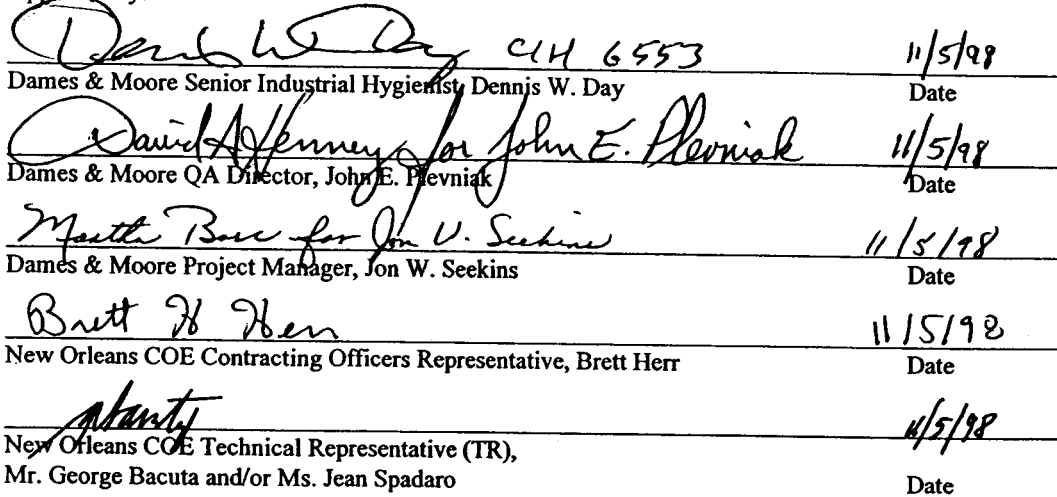 Dennis W Day CIH 6553 11/5/98
Dames & Moore Senior Industrial Hygienist, Dennis W. Day Date
David A Kenney for John E. Plevniak 11/5/98
Dames & Moore QA Director, John E. Plevniak Date
Martha for Jon W. Seekins 11/5/98
Dames & Moore Project Manager, Jon W. Seekins Date
Brett H Herr 11/5/98
New Orleans COE Contracting Officers Representative, Brett Herr Date
11/5/98
New Orleans COE Technical Representative (TR),
Mr. George Bacuta and/or Ms. Jean Spadaro Date